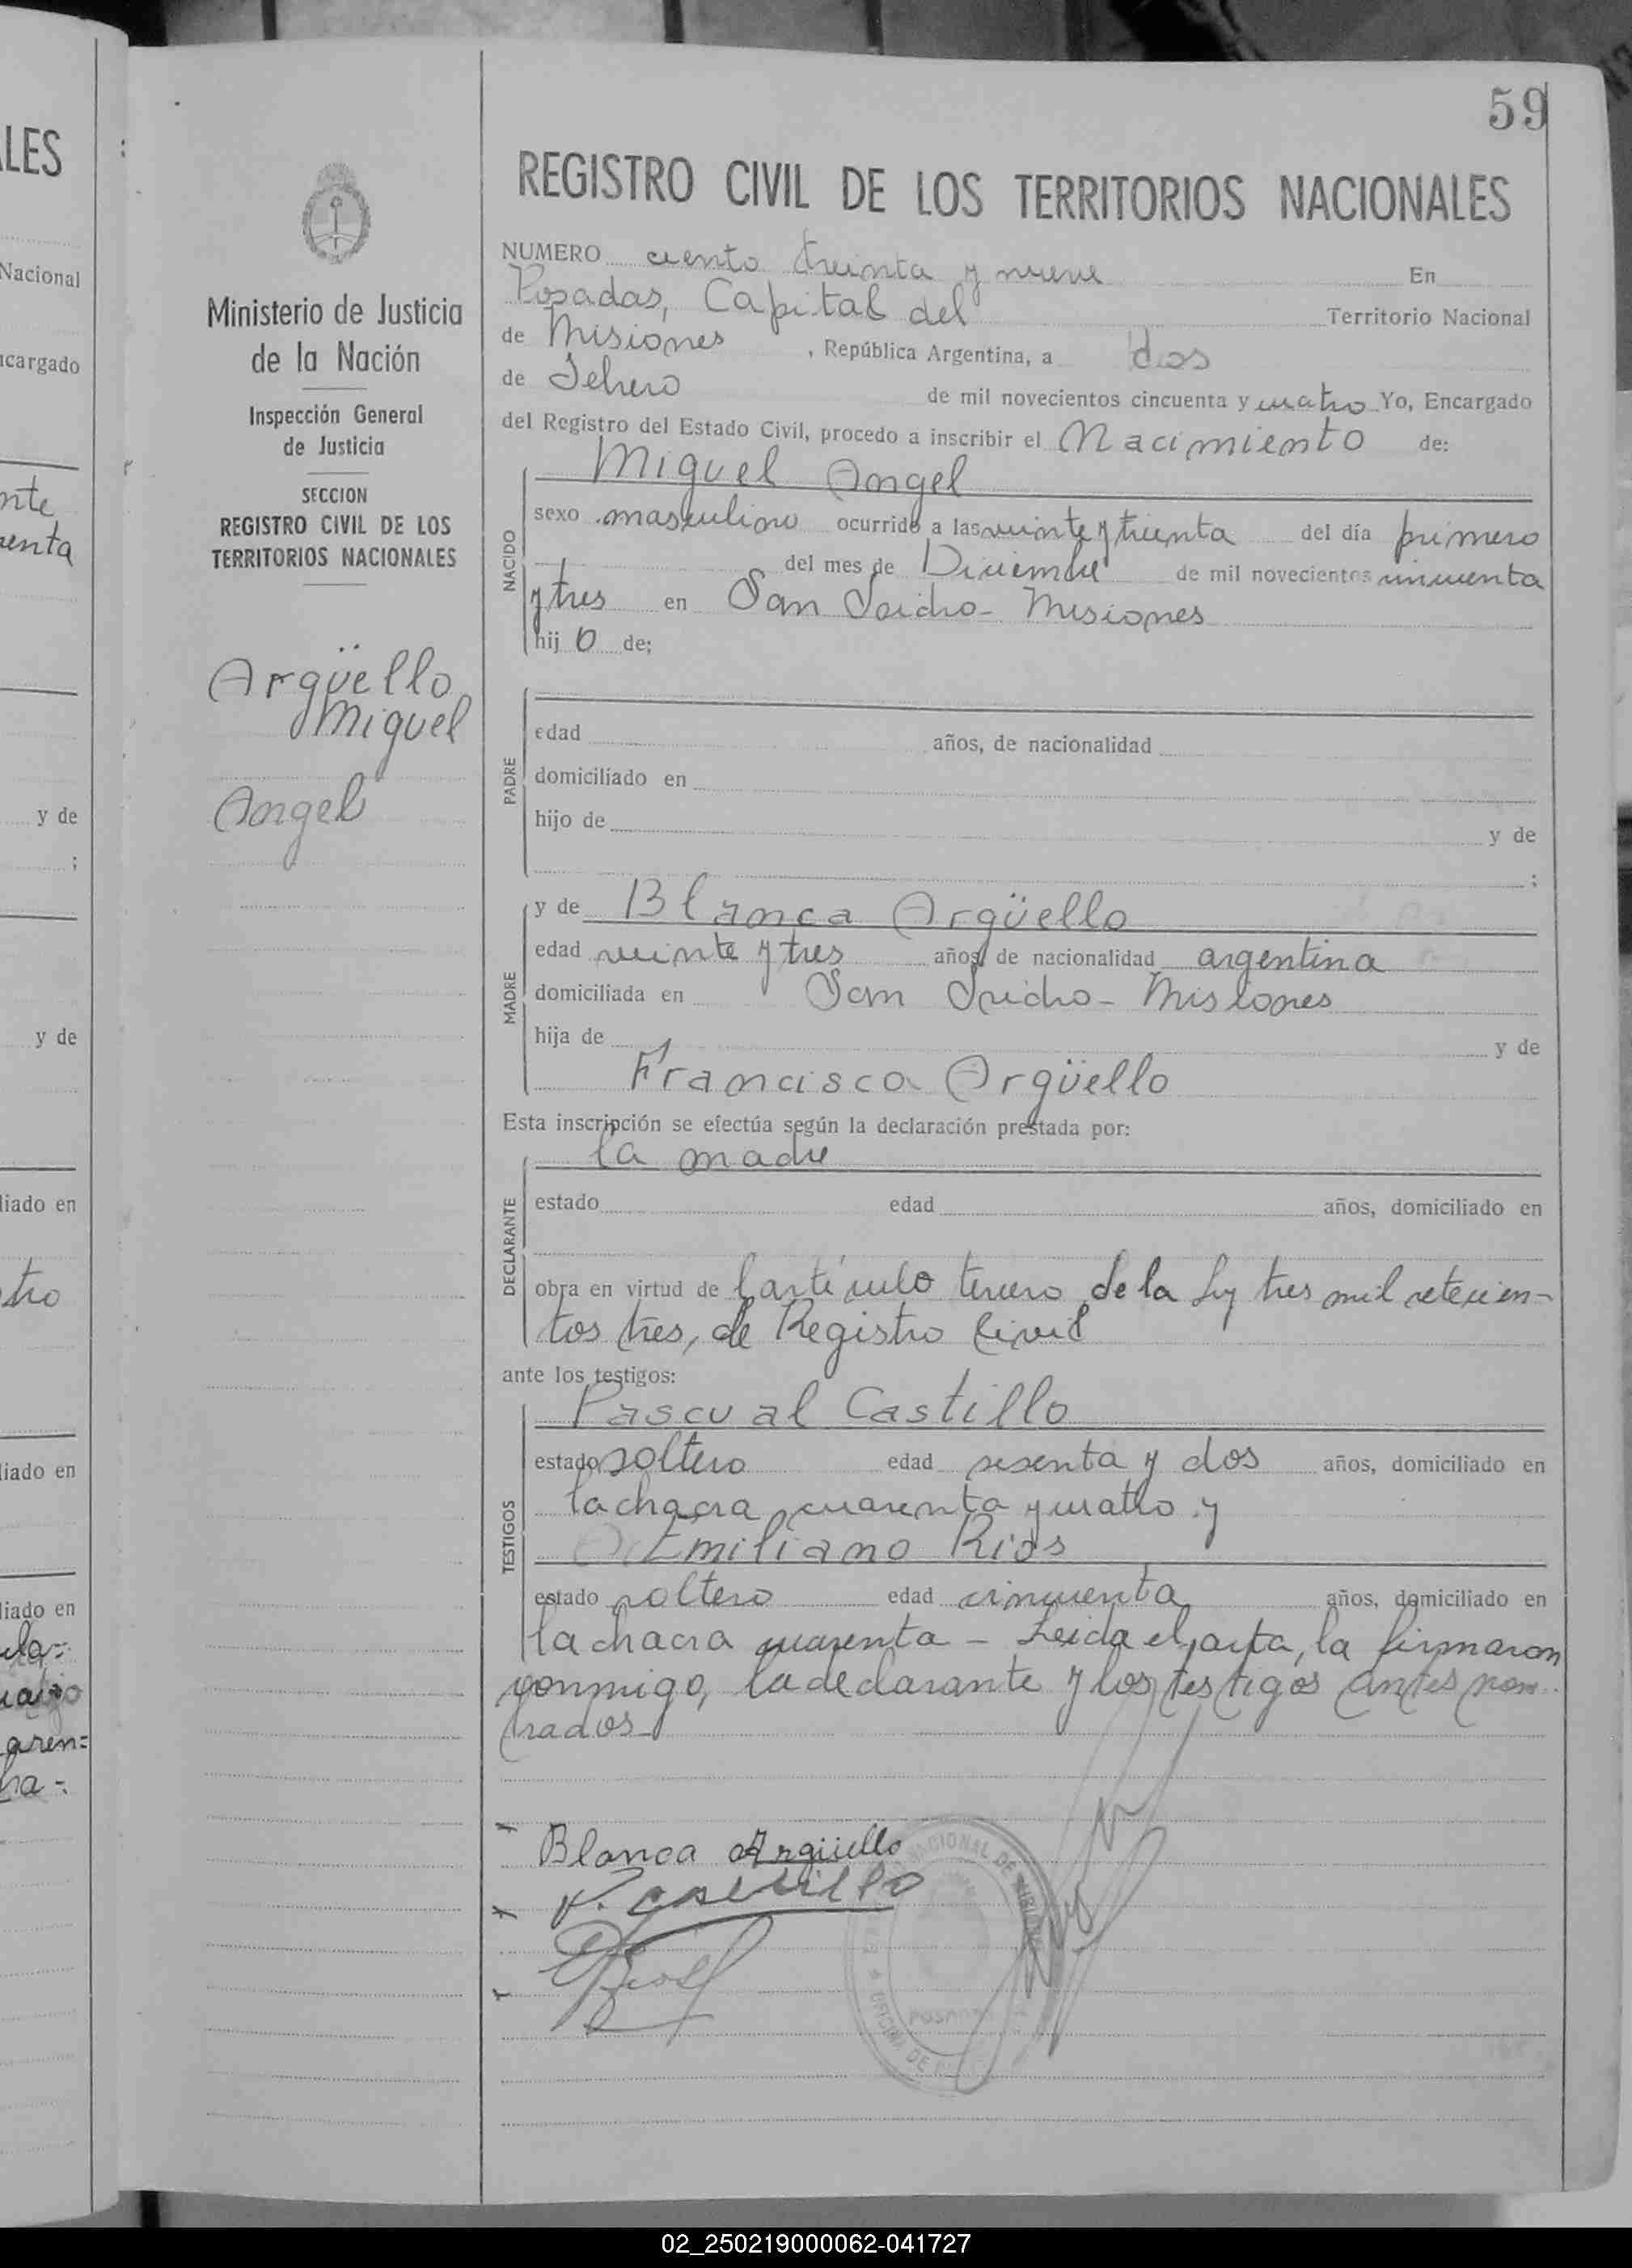 59
LES
Nacional
ncargado
nte
renta
y de
;
y de
liado en
tro
liado en
liado en
aren=
ha-:
Ministerio de Justicia
de la Nación
Inspección General
de Justicia
SECCION
REGISTRO CIVIL DE LOS
TERRITORIOS NACIONALES
Argüello
Miguel
Angel
REGISTRO CIVIL DE LOS TERRITORIOS NACIONALES
NUMERO ciento treinta y nueve En
Posadas, Capital del Territorio Nacional
de Misiones, República Argentina, a dos
de Febrero de mil novecientos cincuenta y cuatro Yo, Encargado
del Registro del Estado Civil, procedo a inscribir el Nacimiento de:
NACIDO
Miguel Angel
sexo masculino ocurrido a las veinte y treinta del día primero
del mes de Diciembre de mil novecientos cincuenta
y tres en San Isidro - Misiones
hijo de;
PADRE
edad años, de nacionalidad
domiciliado en
hijo de y de
;
MADRE
y de Blanca Argüello
edad veinte y tres años, de nacionalidad argentina
domiciliada en San Isidro - Misiones
hija de y de
Francisca Argüello
Esta inscripción se efectúa según la declaración prestada por:
DECLARANTE
la madre
estado edad años, domiciliado en
obra en virtud de l artículo tercero de la Ley tres mil setecien-
tos tres, de Registro Civil
ante los testigos:
TESTIGOS
Pascual Castillo
estado soltero edad sesenta y dos años, domiciliado en
la chacra cuarenta y cuatro y
Emiliano Rios
estado soltero edad cincuenta años, domiciliado en
la chacra cuarenta - Leida el acta, la firmaron
conmigo, la declarante y los testigos antes nom
brados-
Blanca Argüello
P. Castillo
E Rios
NACIONAL DE
OFICINA DE
POSADAS
02_250219000062-041727